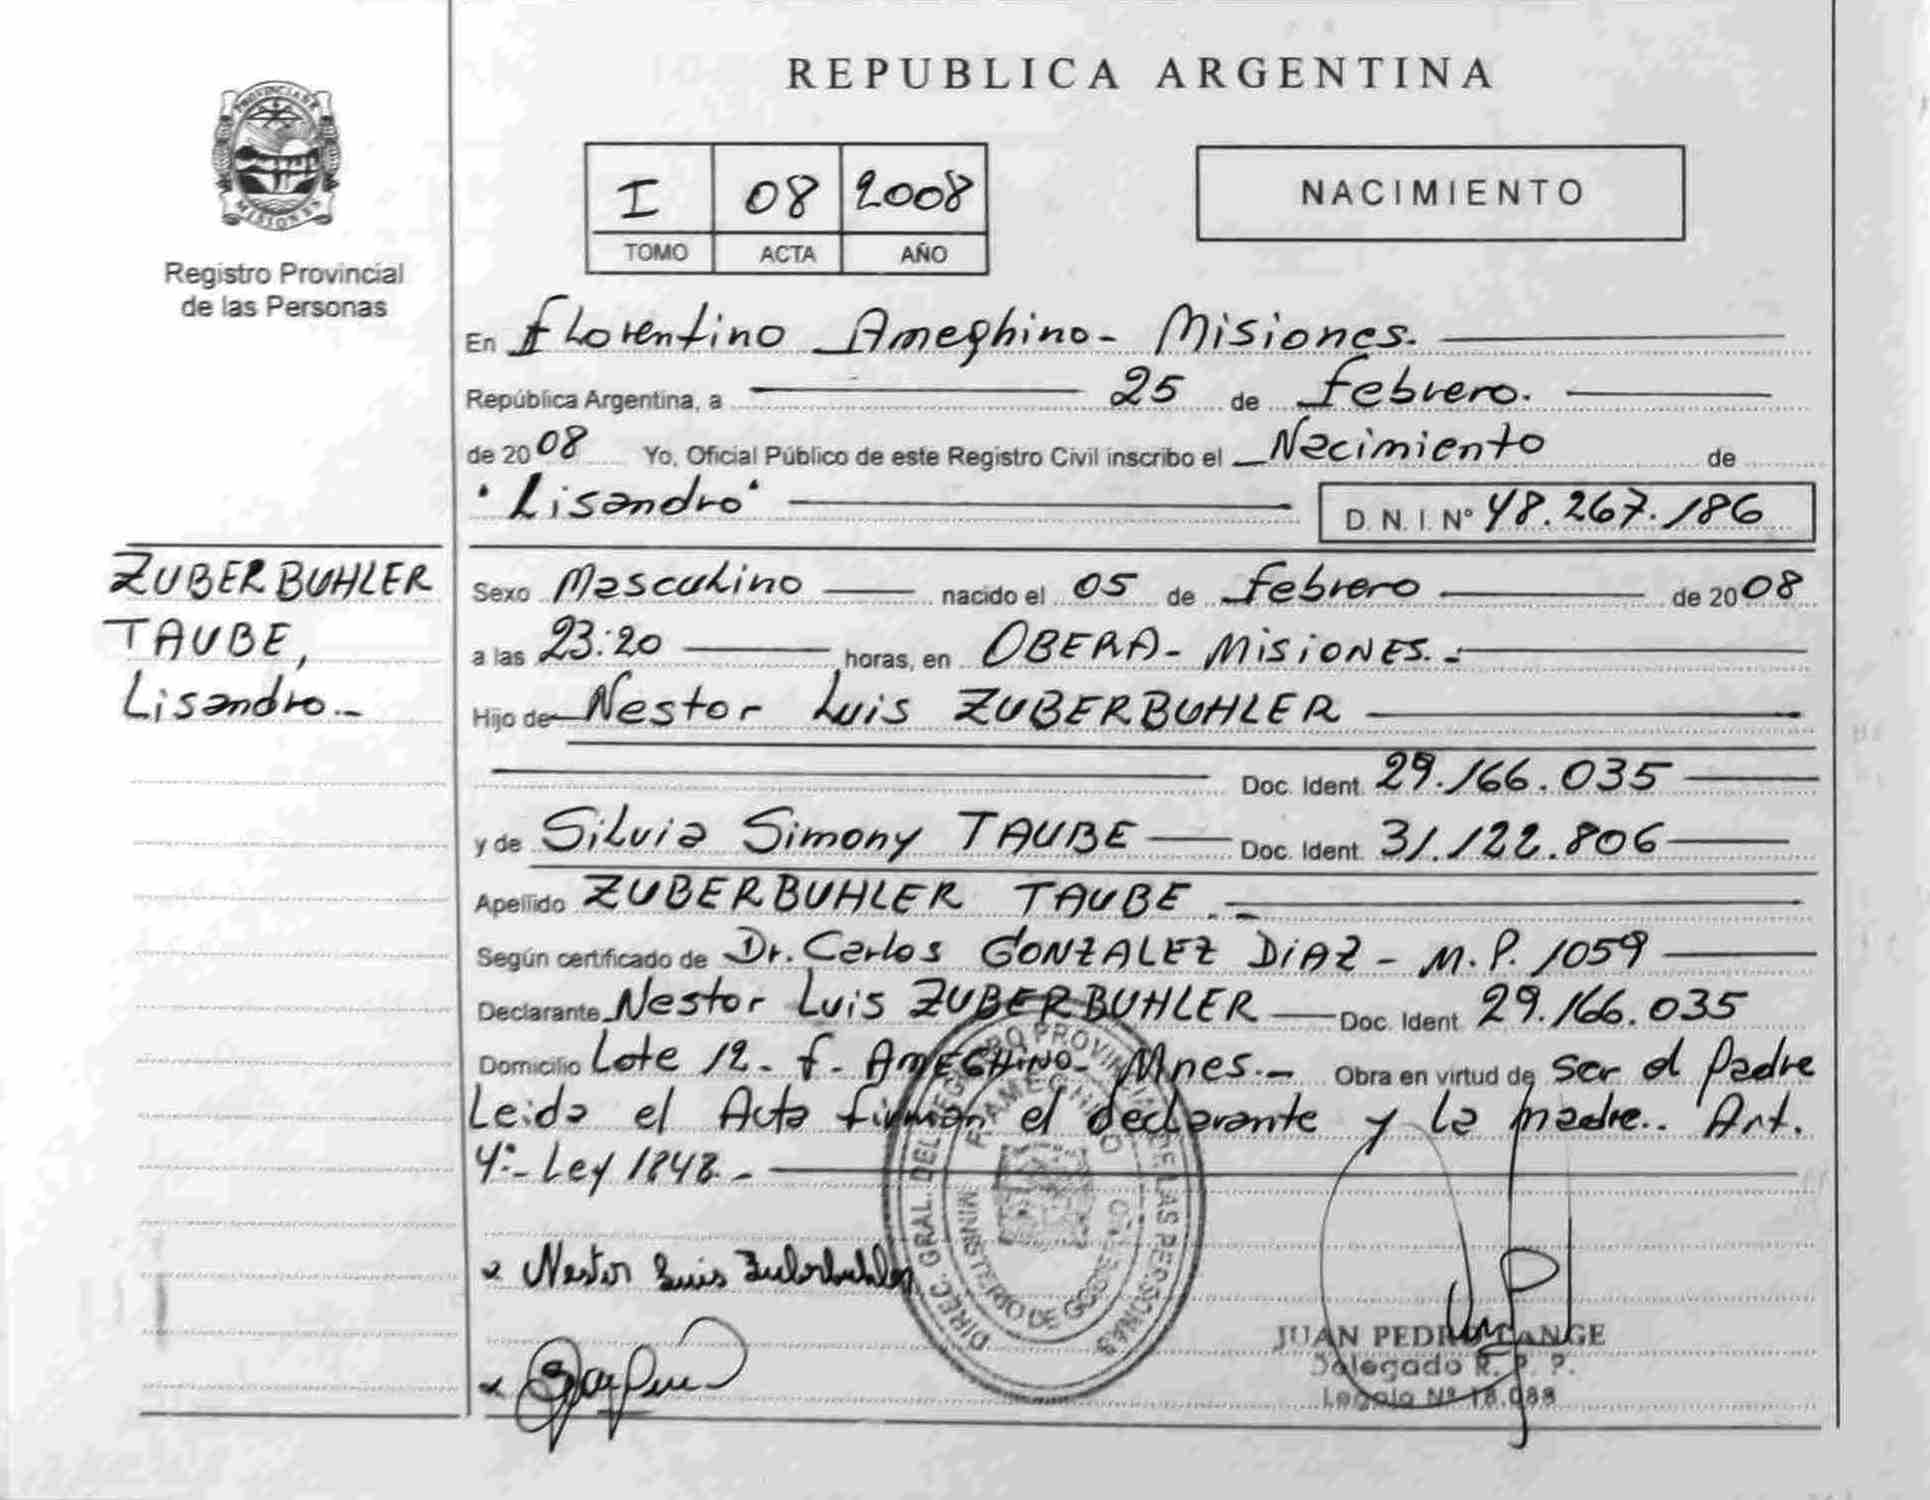 REPUBLICA ARGENTINA
PROVINCIA DE
MISIONES
Registro Provincial
de las Personas
I 08 2008
TOMO ACTA AÑO
NACIMIENTO
En Florentino Ameghino - Misiones.
República Argentina, a 25 de febrero.
de 2008 Yo, Oficial Público de este Registro Civil inscribo el Nacimiento de
"Lisandro" D. N. I. Nº 48.267.186
ZUBERBUHLER
TAUBE,
Lisandro.-
Sexo Masculino nacido el 05 de febrero de 2008
a las 23:20 horas, en OBERA - MISIONES.-
Hijo de Nestor Luis ZUBERBUHLER
Doc. Ident. 29.166.035
y de Silvia Simony TAUBE Doc. Ident. 31.122.806
Apellido ZUBERBUHLER TAUBE.-
Según certificado de Dr. Carlos GONZALEZ DIAZ - M.P. 1059
Declarante Nestor Luis ZUBERBUHLER Doc. Ident. 29.166.035
Domicilio Lote 12 - f. AMEGHINO - Mnes.- Obra en virtud de ser el padre
Leida el Acta firman el declarante y la madre.. Art.
4º- Ley 1848.-
x Nestor Luis Zuberbuhler
x
DIREC. GRAL. DEL REGISTRO PROVINCIAL DE LAS PERSONAS
F. AMEGHINO
MINISTERIO DE GOBIE
JUAN PEDRO LANGE
Delegado R. P. P.
Legajo Nº 18.088